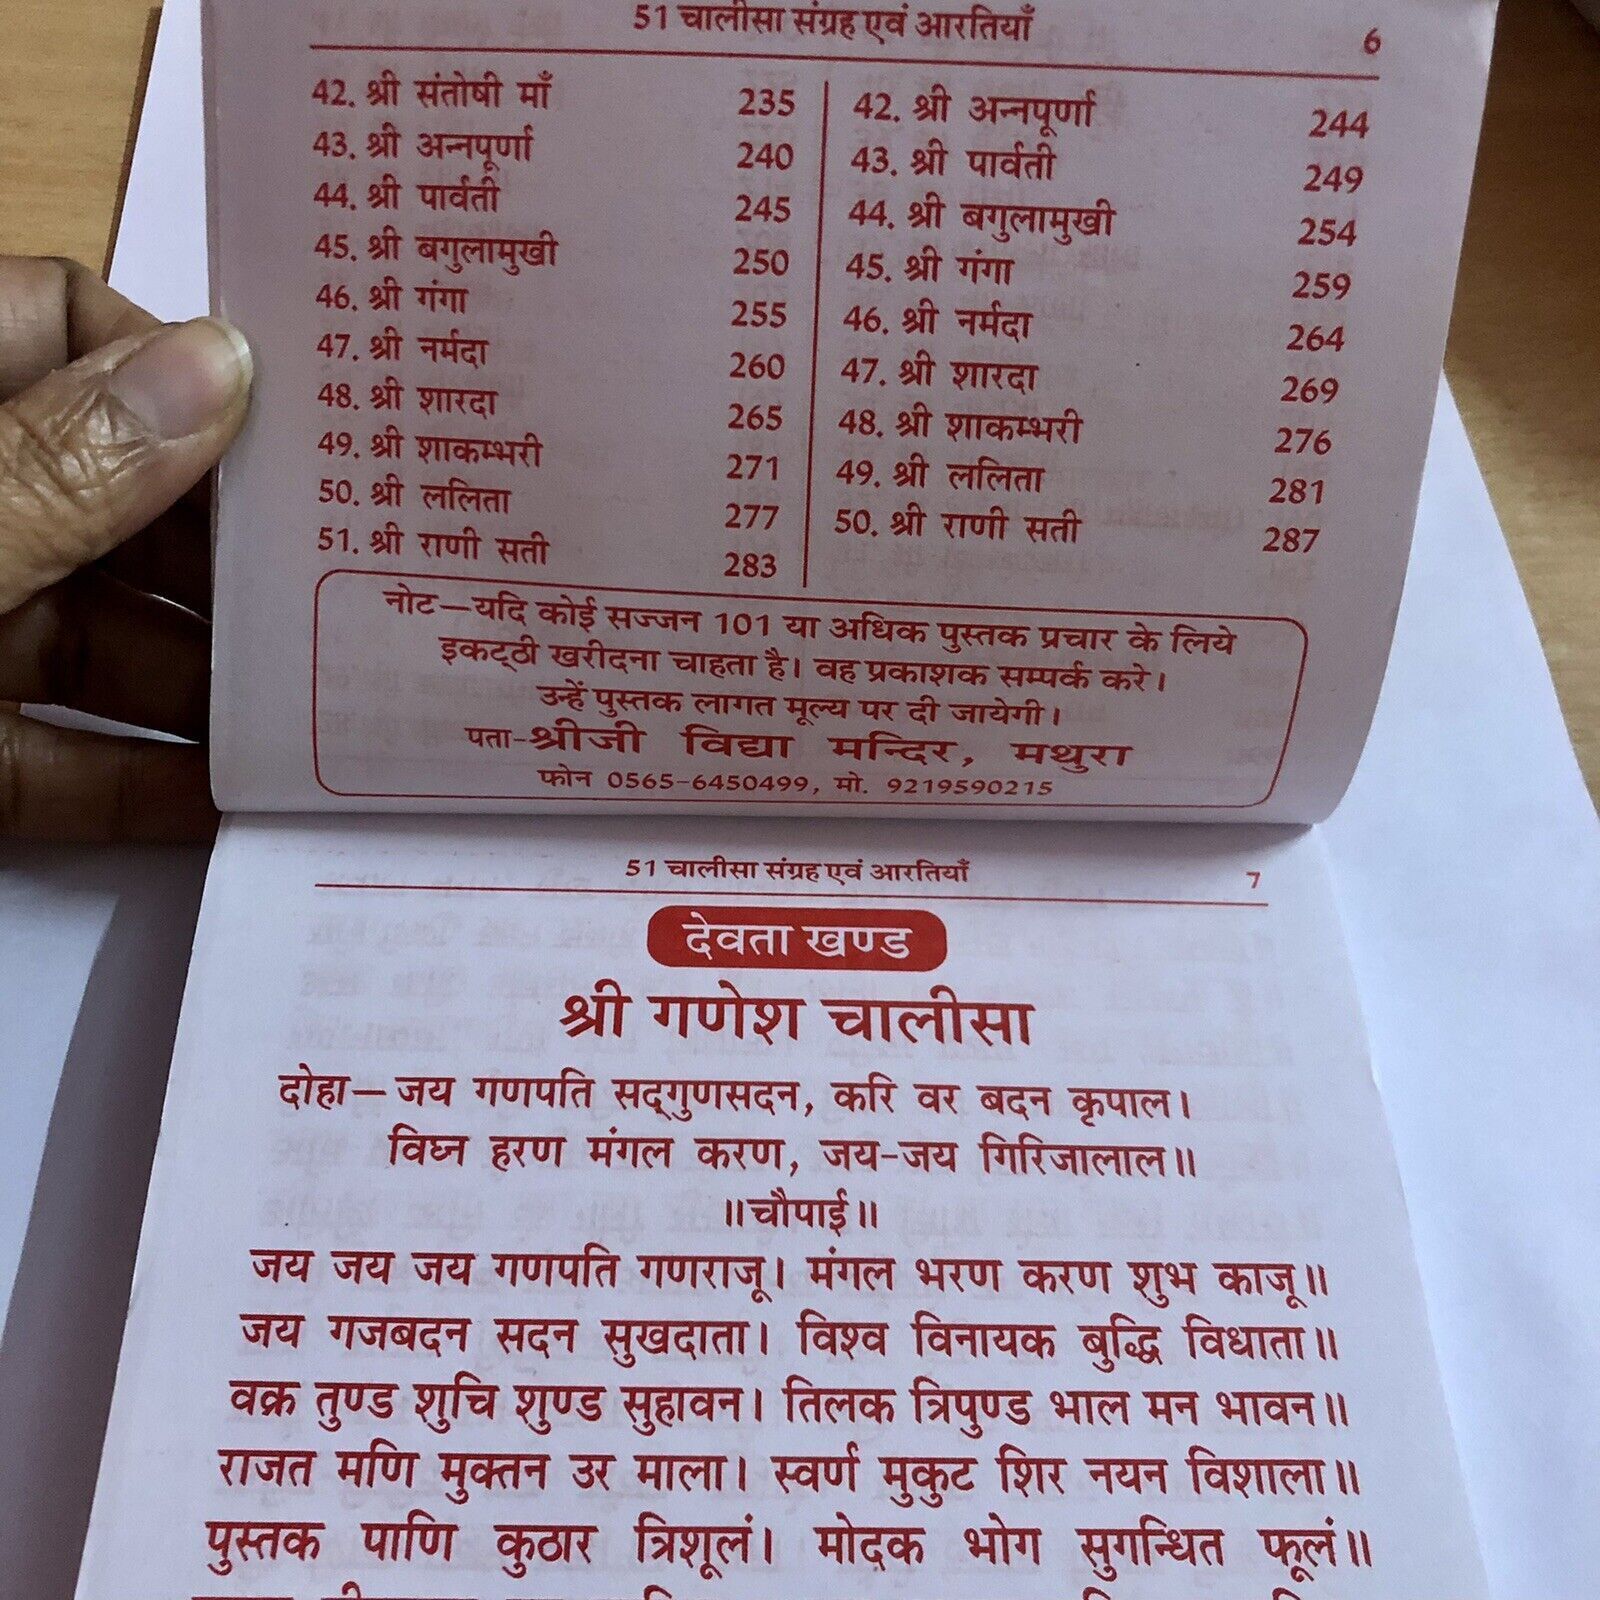 51 चालीसा संग्रह एवं आरतियाँ 6
42. श्री संतोषी माँ 235
43. श्री अन्नपूर्णा 240
44. श्री पार्वती 245
45. श्री बगुलामुखी 250
46. श्री गंगा 255
47. श्री नर्मदा 260
48. श्री शारदा 265
49. श्री शाकम्भरी 271
50. श्री ललिता 277
51. श्री राणी सती 283
42. श्री अन्नपूर्णा 244
43. श्री पार्वती 249
44. श्री बगुलामुखी 254
45. श्री गंगा 259
46. श्री नर्मदा 264
47. श्री शारदा 269
48. श्री शाकम्भरी 276
49. श्री ललिता 281
50. श्री राणी सती 287
नोट—यदि कोई सज्जन 101 या अधिक पुस्तक प्रचार के लिये
इकट्ठी खरीदना चाहता है। वह प्रकाशक सम्पर्क करे।
उन्हें पुस्तक लागत मूल्य पर दी जायेगी।
पता-श्रीजी विद्या मन्दिर, मथुरा
फोन 0565-6450499, मो. 9219590215
51 चालीसा संग्रह एवं आरतियाँ 7
देवता खण्ड
श्री गणेश चालीसा
दोहा—जय गणपति सद्गुणसदन, करि वर बदन कृपाल।
विघ्न हरण मंगल करण, जय-जय गिरिजालाल॥
॥चौपाई॥
जय जय जय गणपति गणराजू। मंगल भरण करण शुभ काजू॥
जय गजबदन सदन सुखदाता। विश्व विनायक बुद्धि विधाता॥
वक्र तुण्ड शुचि शुण्ड सुहावन। तिलक त्रिपुण्ड भाल मन भावन॥
राजत मणि मुक्तन उर माला। स्वर्ण मुकुट शिर नयन विशाला॥
पुस्तक पाणि कुठार त्रिशूलं। मोदक भोग सुगन्धित फूलं॥